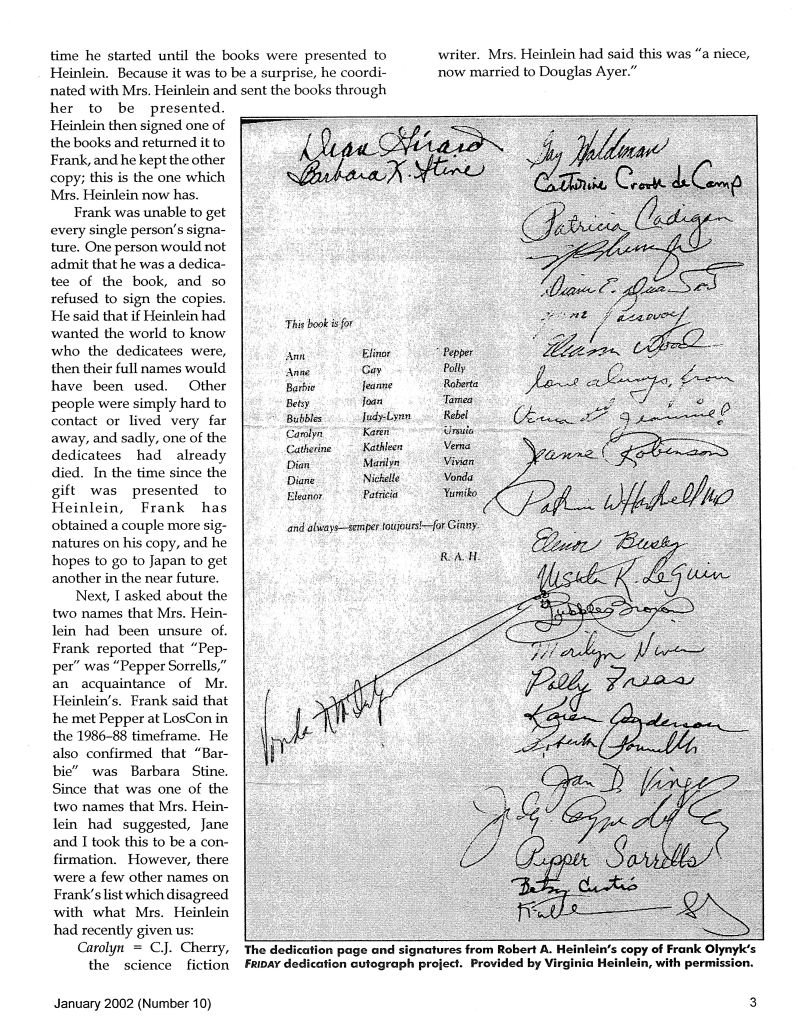 time he started until the books were presented to
Heinlein. Because it was to be a surprise, he coordi-
nated with Mrs. Heinlein and sent the books through
her to be presented.
Heinlein then signed one of
the books and returned it to
Frank, and he kept the other
copy; this is the one which
Mrs. Heinlein now has.
Frank was unable to get
every single person's signa-
ture. One person would not
admit that he was a dedica-
tee of the book, and so
refused to sign the copies.
He said that if Heinlein had
wanted the world to know
who the dedicatees were,
then their full names would
have been used. Other
people were simply hard to
contact or lived very far
away, and sadly, one of the
dedicatees had already
died. In the time since the
gift was presented to
Heinlein, Frank has
obtained a couple more sig-
natures on his copy, and he
hopes to go to Japan to get
another in the near future.
Next, I asked about the
two names that Mrs. Hein-
lein had been unsure of.
Frank reported that "Pep-
per" was "Pepper Sorrells,"
an acquaintance of Mr.
Heinlein's. Frank said that
he met Pepper at LosCon in
the 1986–88 timeframe. He
also confirmed that "Bar-
bie" was Barbara Stine.
Since that was one of the
two names that Mrs. Hein-
lein had suggested, Jane
and I took this to be a con-
firmation. However, there
were a few other names on
Frank's list which disagreed
with what Mrs. Heinlein
had recently given us:
Carolyn = C.J. Cherry,
the science fiction
writer. Mrs. Heinlein had said this was "a niece,
now married to Douglas Ayer."
Dian Girard
Barbara K. Stine
Gay Haldeman
Catherine Crook de Camp
Patricia Cadigan
Diane E.
love always, from
Jeanne Robinson
Elinor Busby
Ursula K. Le Guin
Bubbles Broxon
Marilyn Niven
Polly Freas
Karen Anderson
Roberta Pournelle
Joan D. Vinge
Judy-Lynn del Rey
Pepper Sorrells
Betsy Curtis
Vonda N. McIntyre
This book is for
Ann Elinor Pepper
Anne Gay Polly
Barbie Jeanne Roberta
Betsy Joan Tamea
Bubbles Judy-Lynn Rebel
Carolyn Karen Ursula
Catherine Kathleen Verna
Dian Marilyn Vivian
Diane Nichelle Vonda
Eleanor Patricia Yumiko
and always—semper toujours!—for Ginny.
R. A. H.
The dedication page and signatures from Robert A. Heinlein's copy of Frank Olynyk's
FRIDAY dedication autograph project. Provided by Virginia Heinlein, with permission.
January 2002 (Number 10)
3